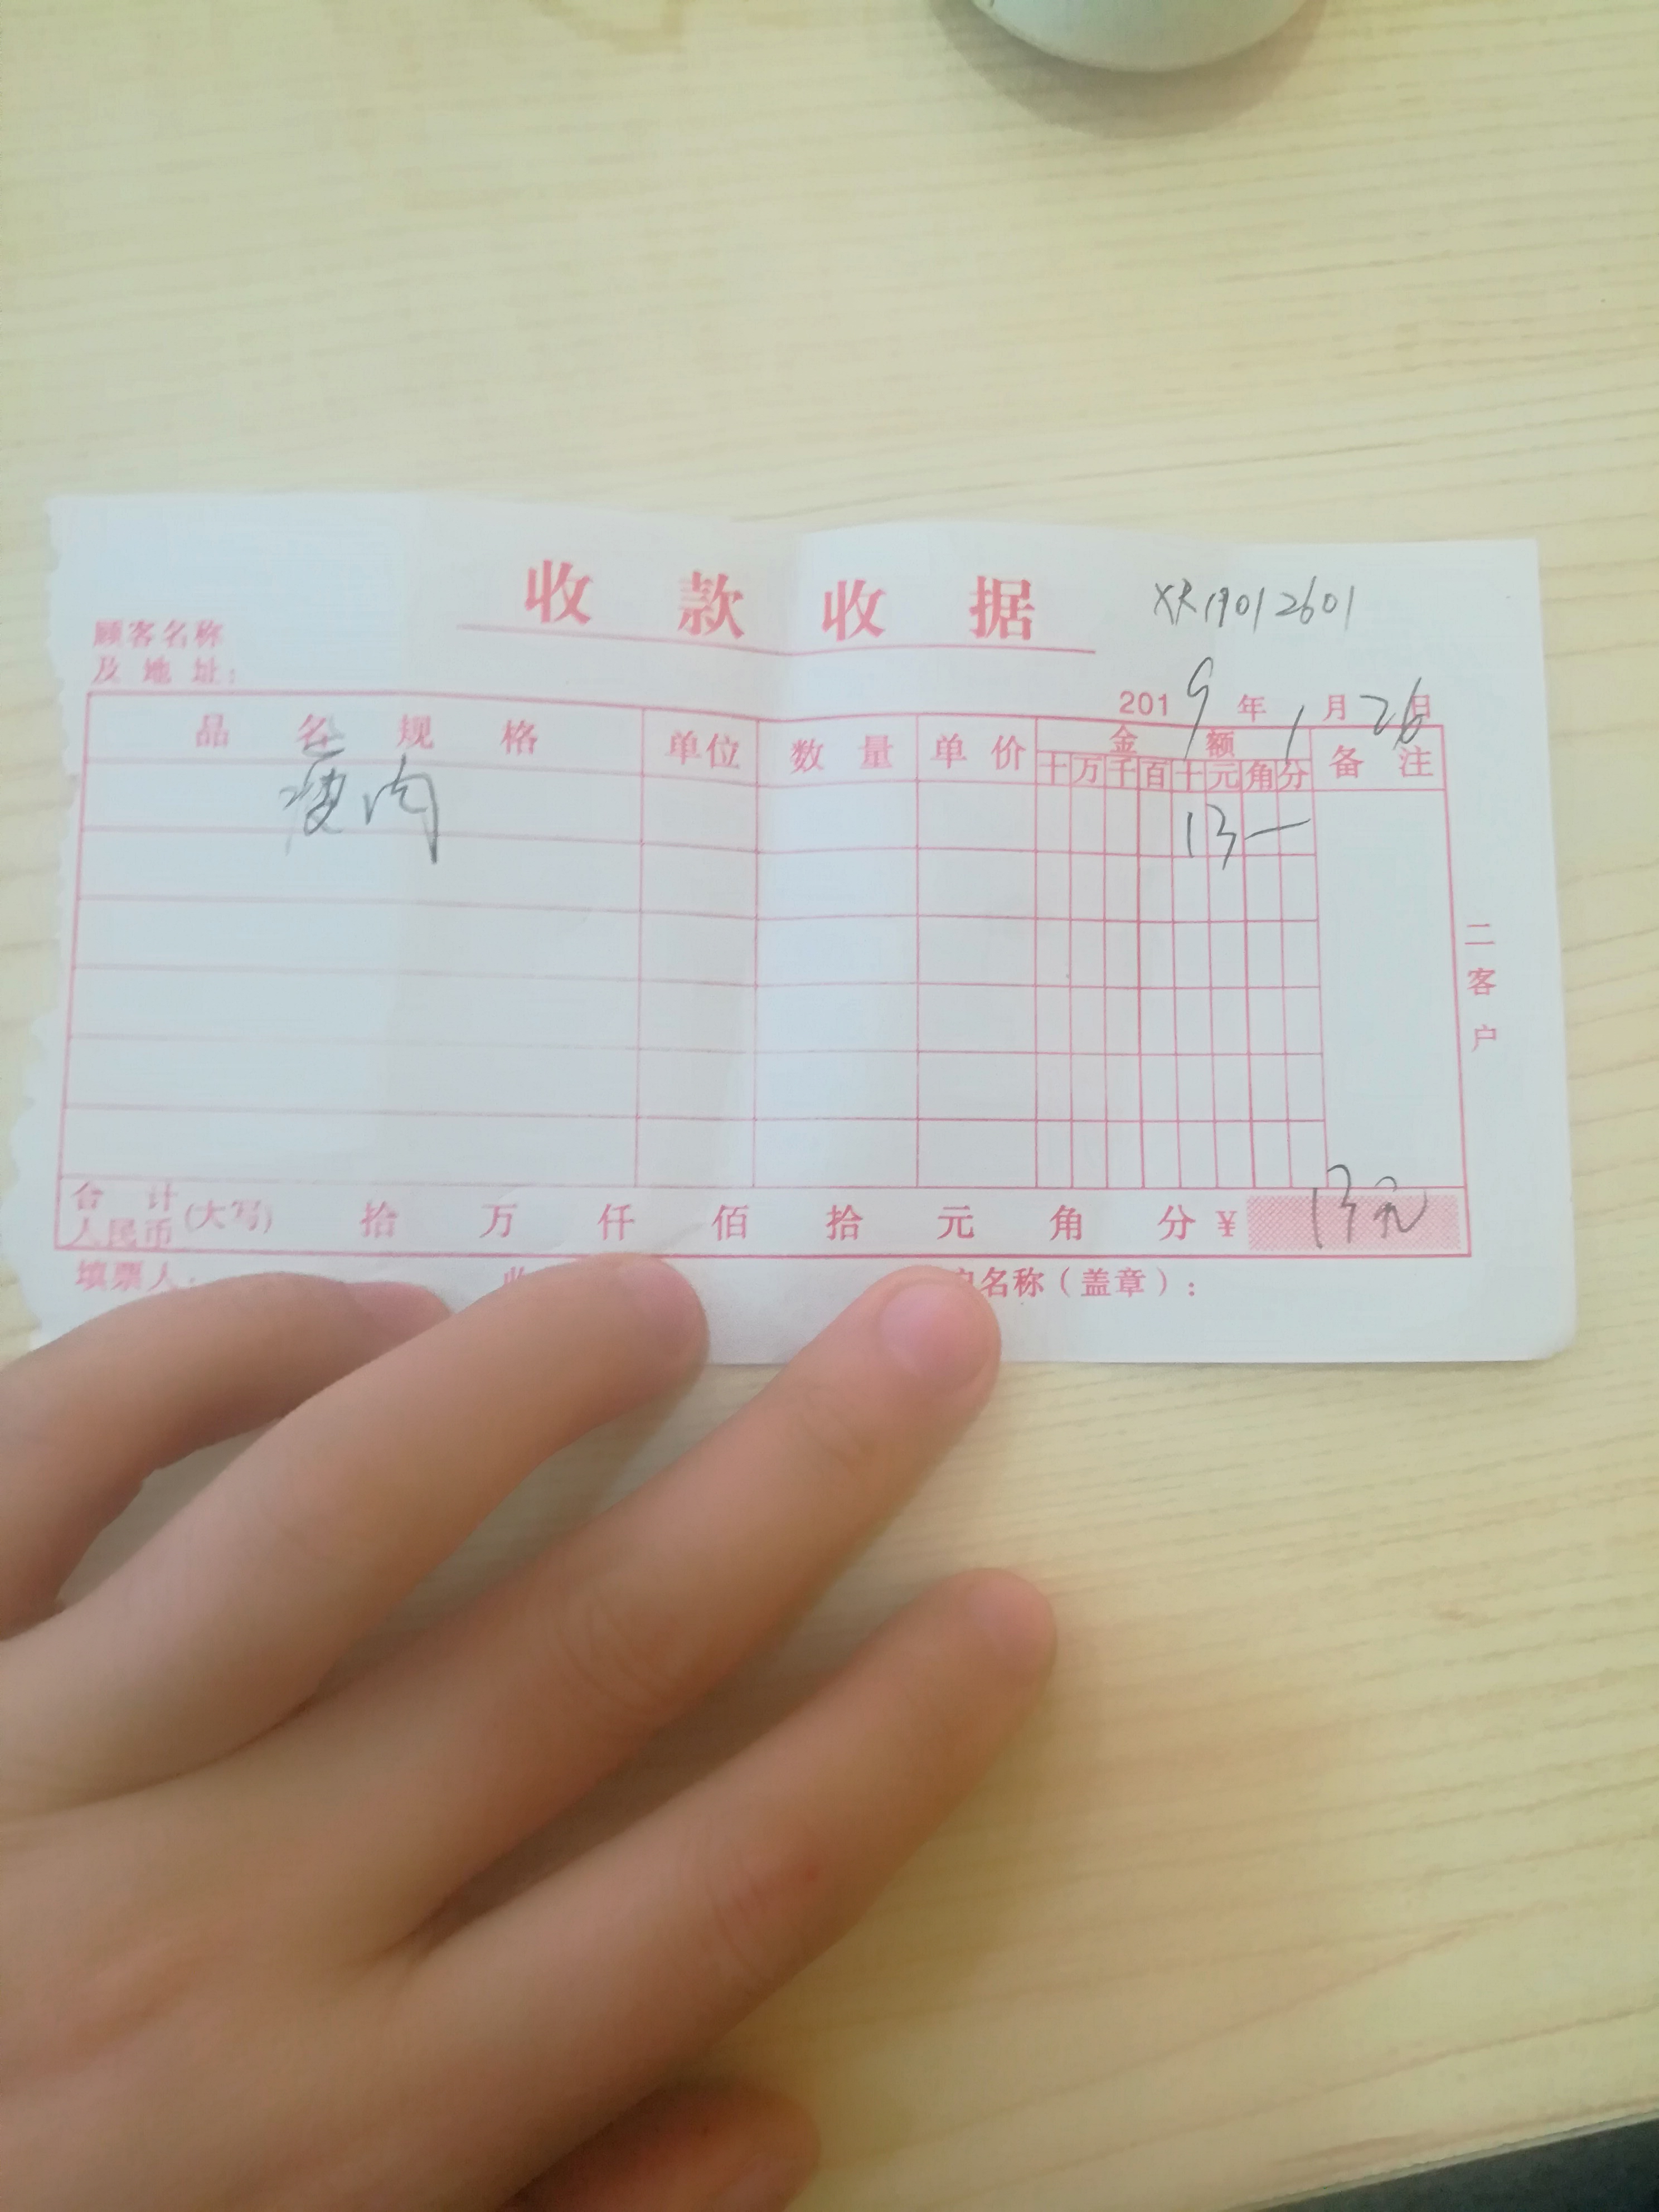 收款收据
XR19012601
顾客名称
及地址：
2019年1月26日
品名规格 单位 数量 单价 金额 备注
十万千百十元角分
瘦肉 13—
二客户
合计
人民币 (大写) 拾 万 仟 佰 拾 元 角 分 ¥ 13元
填票人： 名称（盖章）：